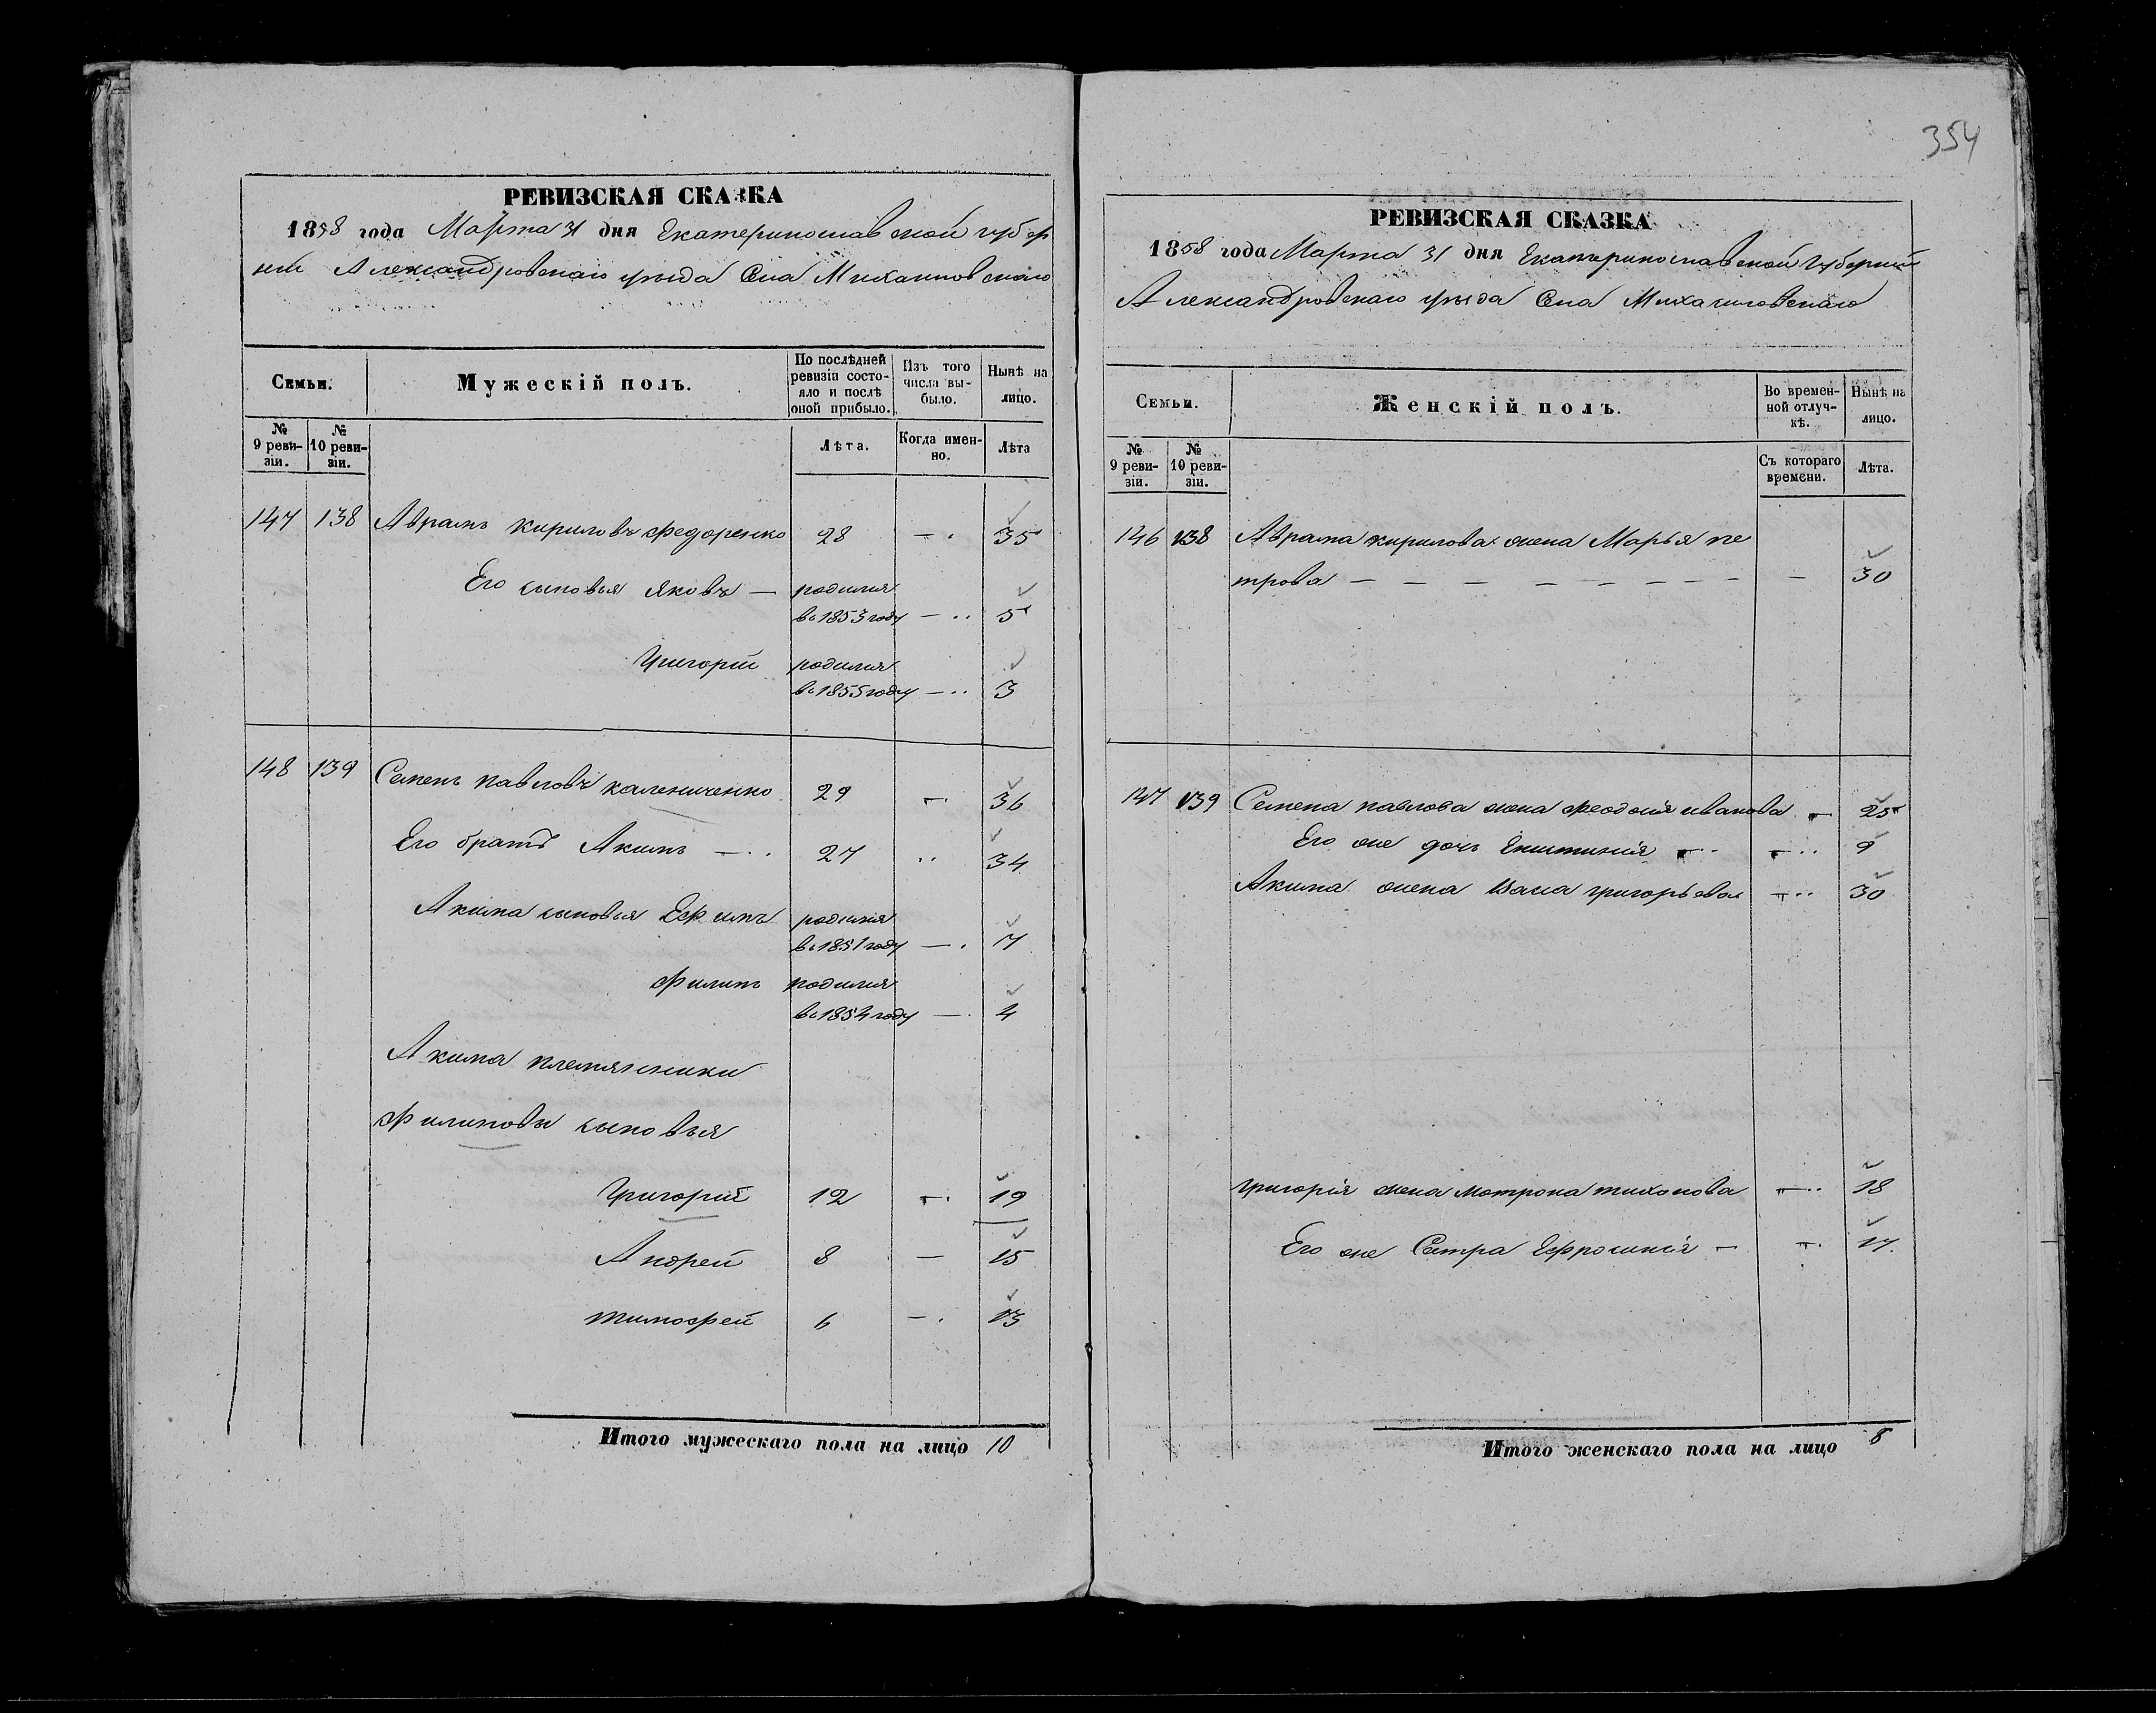 354
РЕВИЗСКАЯ СКАЗКА
1858 года Марта 31 дня Екатеринославской губер
ніи Александровскаго уезда Села Михаиловскаго
Семьи.
Мужескій полъ.
По послѣдней ревизіи состояло и послѣ оной прибыло.
Изъ того числа выбыло.
Нынѣ на лицо.
№ 9 ревизіи.
№ 10 ревизіи.
Лѣта.
Когда именно.
Лѣта
147 138 Аврамъ кириловъ федоренко 28 — 35
Его сыновья яковъ — родился
въ 1853 году — 5
Григорій родился
въ 1855 году — 3
148 139 Семенъ павловъ калениченко 29 — 36
Его братъ Акимъ — 27 34
Акима сыновья Ефимъ родился
въ 1851 году — 7
Филипъ родился
въ 1854 году — 4
Акима племянники
Филиповы сыновья
Григорій 12 — 19
Андрей 8 — 15
тимофей 6 — 13
Итого мужескаго пола на лицо 10
РЕВИЗСКАЯ СКАЗКА
1858 года Марта 31 дня Екатеринославской Губерніи
Александровскаго уезда Села Михаиловскаго
Семьи.
Женскій полъ.
Во временной отлучкѣ.
Нынѣ на лицо.
№ 9 ревизіи.
№ 10 ревизіи.
Съ котораго времени.
Лѣта.
146 138 Аврама кирилова жена Марья пе
трова — — — — — — — — — 30
147 139 Семена павлова жена феодосія иванова — 25
Его же дочь Епистинія — 9
Акима жена Васса григорьева — 30
григорія жена мотрона тихонова — 18
Его же Сестра Ефросинія — — 17.
Итого женскаго пола на лицо 6